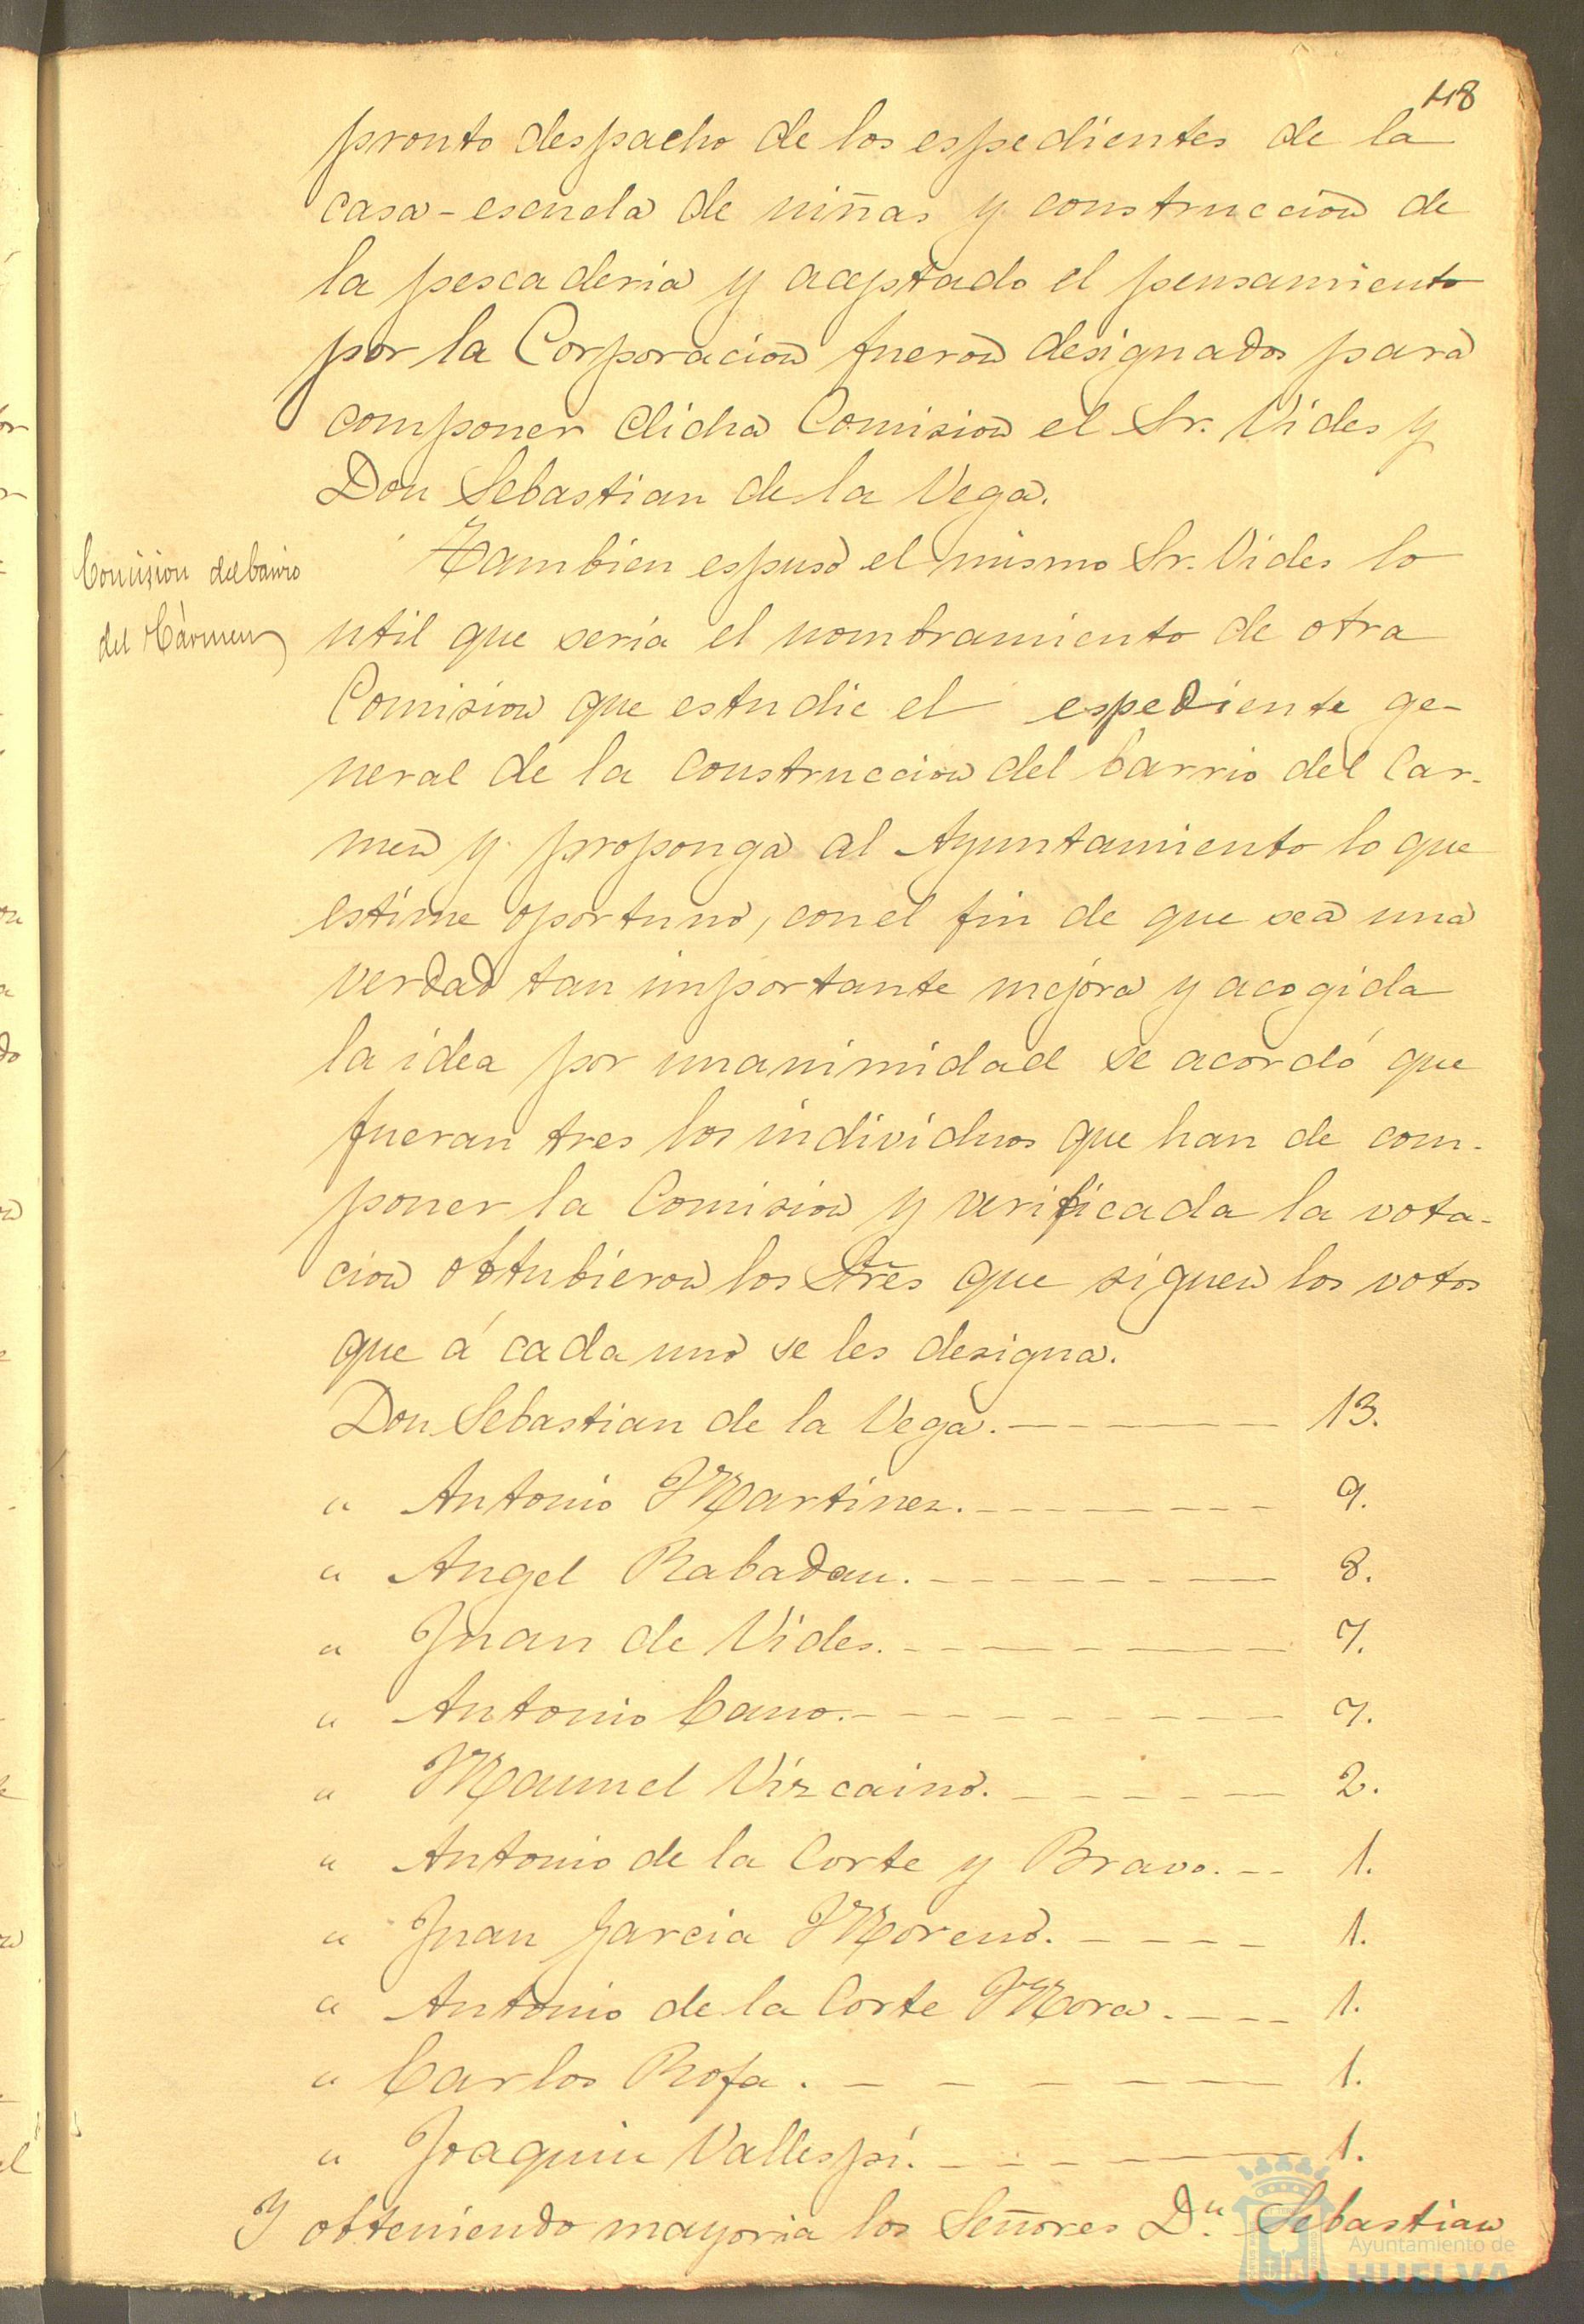 48
pronto despacho de los espedientes de la
casa-escuela de niñas y construccion de
la pescaderia y aceptado el pensamiento
por la Corporacion fueron designados para
componer dicha Comision el Sr. Vides y
Don Sebastian de la Vega.
Comision del barrio
del Cármen
Tambien espuso el mismo Sr. Vides lo
util que sería el nombramiento de otra
Comision que estudie el espediente ge-
neral de la construccion del barrio del Car-
men y proponga al Ayuntamiento lo que
estime oportuno, con el fin de que sea una
verdad tan importante mejora y acogida
la idea por unanimidad se acordó que
fueran tres los individuos que han de com-
poner la Comision y verificada la vota-
cion obtubieron los Sres que siguen los votos
que á cada uno se les designa.
Don Sebastian de la Vega. 13.
" Antonio Martinez. 9.
" Angel Rabadan. 8.
" Juan de Vides. 7.
" Antonio Cano. 7.
" Manuel Vizcaino. 2.
" Antonio de la Corte y Bravo. 1.
" Juan Garcia Moreno. 1.
" Antonio de la Corte Mora. 1.
" Carlos Rofa. 1.
" Joaquin Vallespí. 1.
Y obteniendo mayoria los Señores Dn. Sebastian
Ayuntamiento de
HUELVA